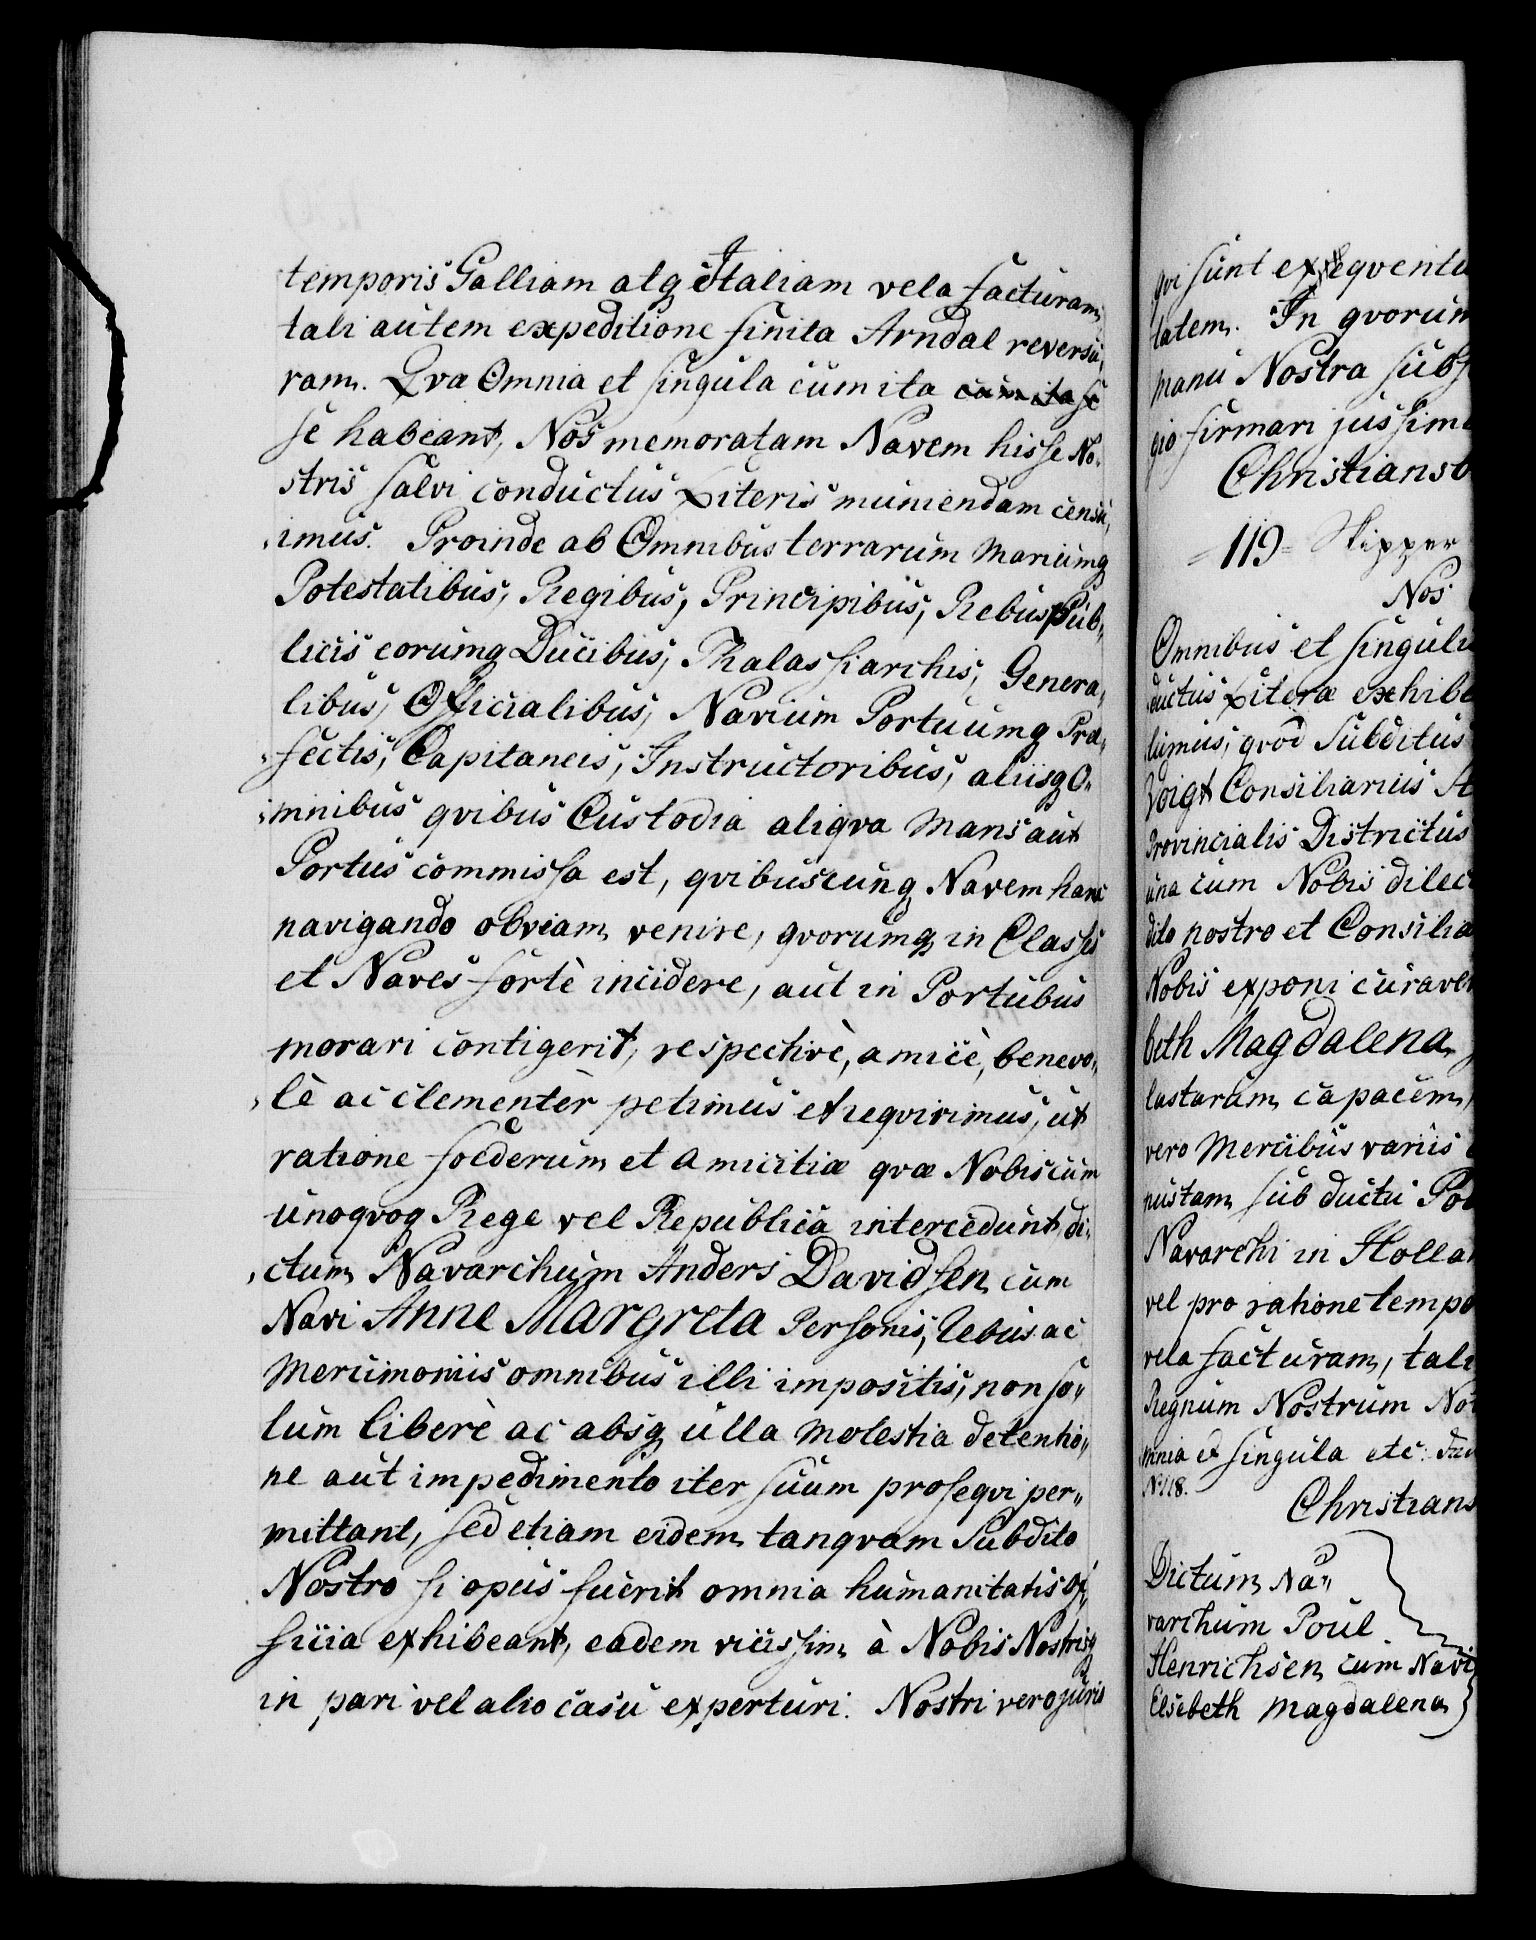 temporis Galliam atq Italiam vela facturam,
tali autem expeditione finita Arndal reversu,
ram. Qva Omnia et singula cum ita cum ita se
se habeant, Nos memoratam Navem hisse No,
stris salvi conductus Literis muniendam censu,
imus. Proinde ab Omnibus terrarum mariumq
Potestatibus, Regibus, Principibus, Rebus Pub,
licis eorumq Ducibus, Thalassiarchis, Genera,
libus, Officialibus, Navium Portuumq Præ,
fectis, Capitaneis, Instructoribus, aliisq O,
mnibus qvibus Custodia aliqva Maris aut
Portus commissa est, qvibuscunq Navem hanc
navigando obviam venire, qvorumq in Classes
et Naves fortè incidere, aut in Portubus
morari contigerit, respectivè, amicè, benevo,
lè ac clementèr petimus et reqvirimus, ut
ratione foederum et amicitiæ qvæ Nobis cum
unoqvoq Rege vel Republica intercedunt, di,
ctum Navarchum Anders Davidsen cum
Navi Anne Margreta Personis, Rebus ac
Mercimoniis omnibus illi impositis, non so,
lum liberè ac absq ulla molestia detentio,
ne aut impedimento iter suum proseqvi per,
mittant, sed etiam eidem tanqvam Subdito
Nostro si opus fuerit omnia humanitatis of,
ficia exhibeant, eadem vicissim à Nobis Nostrisq
in pari vel alio casu experturi. Nostri vero juris
qvi sunt exseqventu
tatem. In qvorum
manu Nostra subs
gio firmari jussim
Christiansb
119 Skipper
Nos
Omnibus et singuli
ductus Literæ exhibe
lumus, qvod Subditus
Voigt Consiliarius
Provincialis Districtus
una cum Nobis dilec
dito nostro et Consilia
Nobis exponi curaver
beth Magdalena
lastarum capacem,
vero Mercibus variis
nustam sub ductu Po
Navarchi in Hollan
vel pro ratione tempo
vela facturam, tali
Regnum Nostrum No
mnia et singula etc.
No 118.
Christians
Dictum Na,
varchum Poul
Henrichsen cum Navi
Elsebeth Magdalena